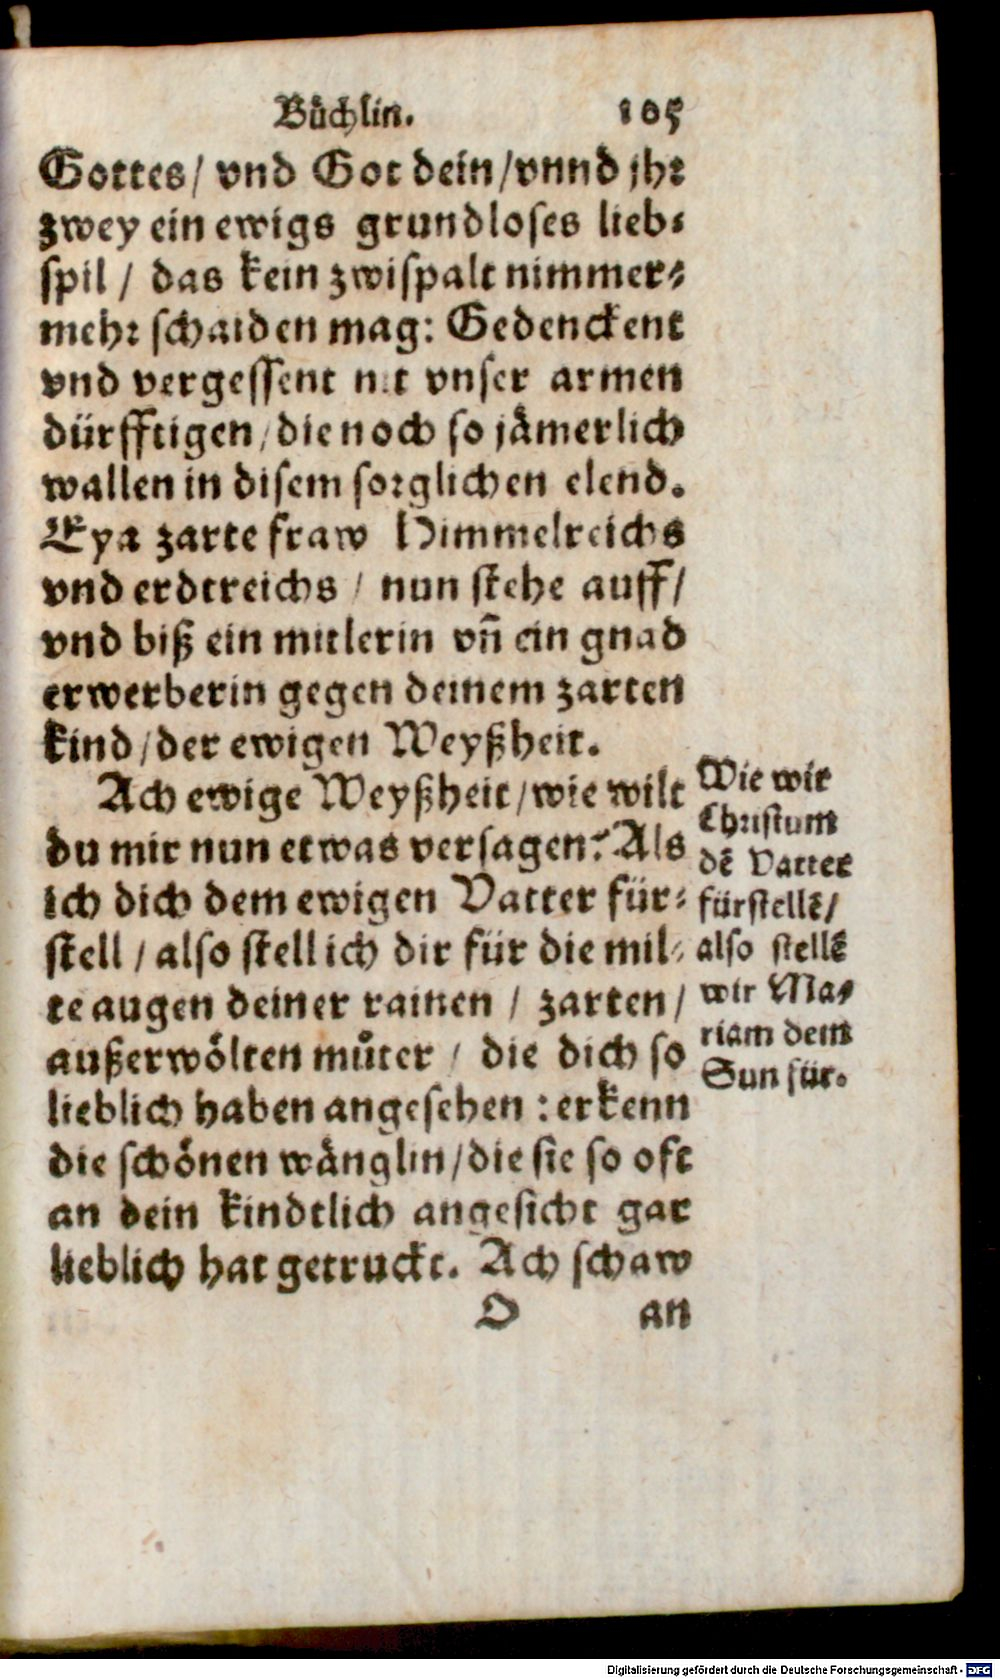 Bůchlin. 105
Gottes/ vnd Got dein/vnnd jhr
zwey ein ewigs grundloses lieb⸗
spil / das kein zwispalt nimmer⸗
mehr schaiden mag: Gedenckent
vnd vergessent nit vnser armen
dürfftigen/die noch so jämerlich
wallen in disem sorglichen elend.
Eya zarte fraw Himmelreichs
vnd erdtreichs / nun stehe auff/
vnd biß ein mitlerin vñ ein gnad
erwerberin gegen deinem zarten
kind/der ewigen Weyßheit.
Ach ewige Weyßheit/wie wilt
du mir nun etwas versagen? Als
ich dich dem ewigen Vatter für⸗
stell / also stell ich dir für die mil⸗
te augen deiner rainen / zarten/
außerwölten můter / die dich so
lieblich haben angesehen : erkenn
die schönen wänglin/die sie so oft
an dein kindtlich angesicht gar
lieblich hat getruckt. Ach schaw
O an
Wie wir
Christum
dē Vatter
fürstellē/
also stellē
wir Ma⸗
riam dem
Sun für.
Digitalisierung gefördert durch die Deutsche Forschungsgemeinschaft - DFG